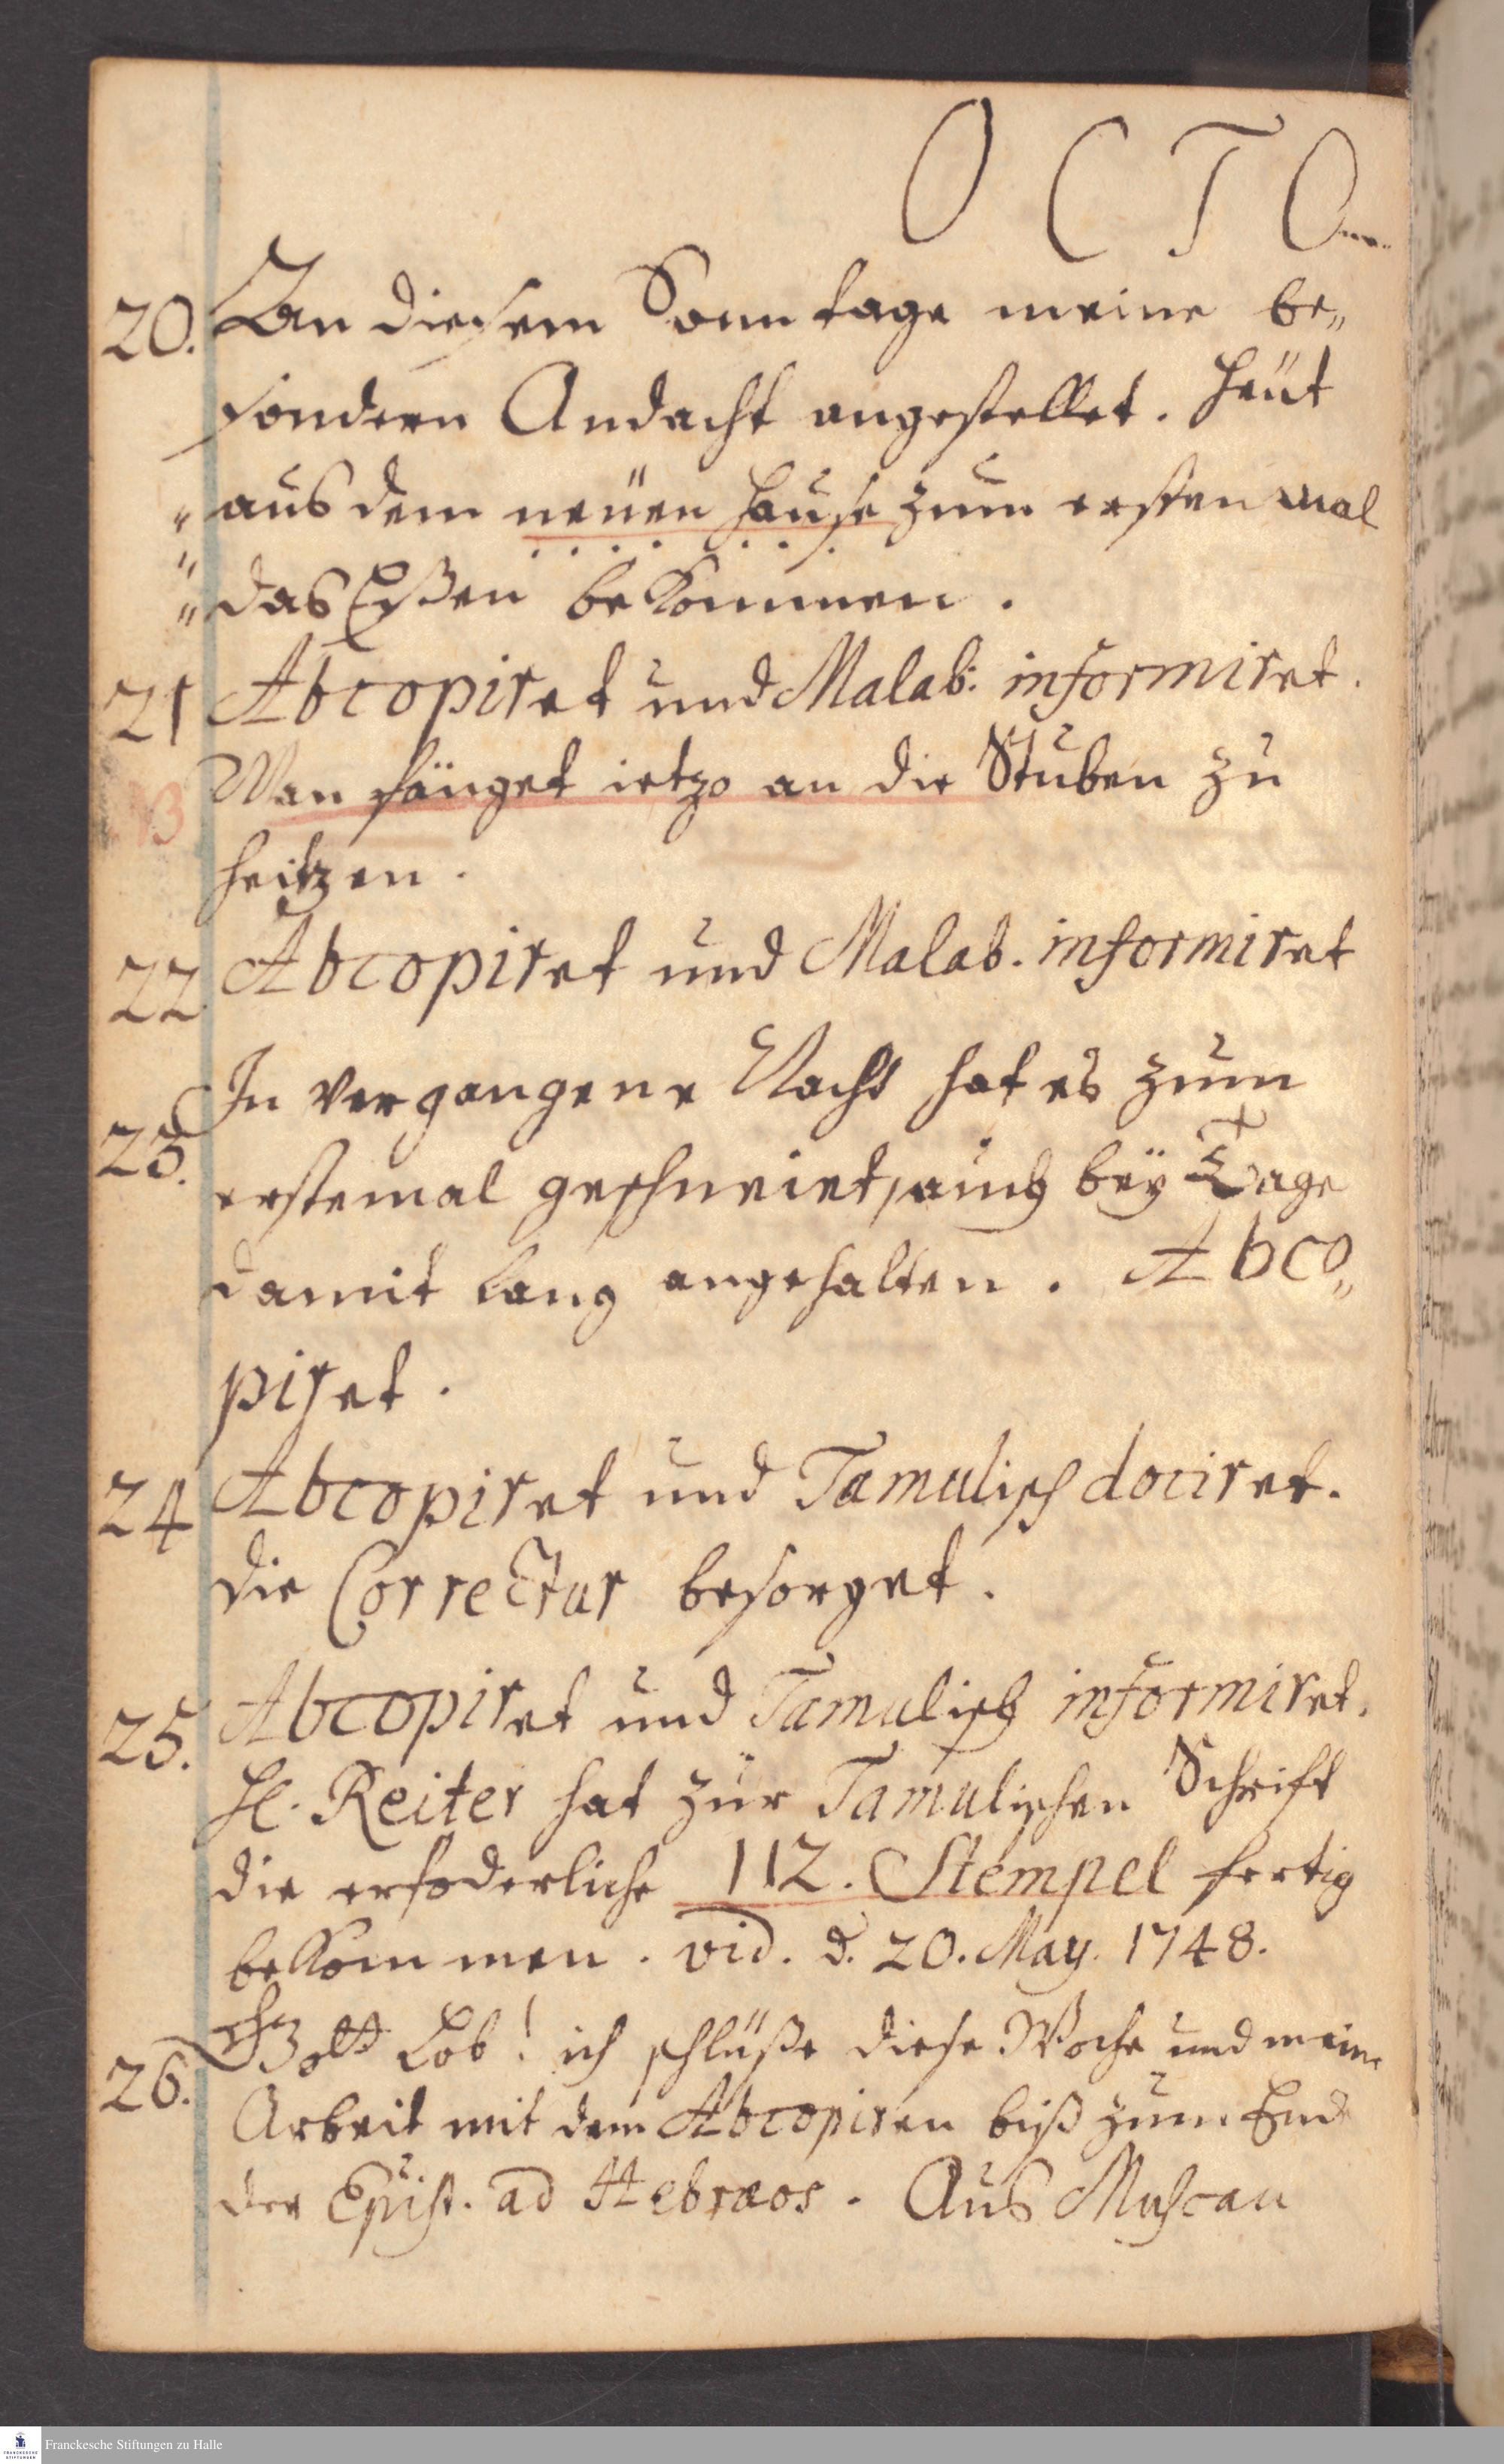 OCTO
20. An diesem Sonntage meine be„
sondern Andacht angestellet. Heüt
„ aus dem neüen Hause zum ersten mal
„ das Eßen bekommen.
21 Abcopiret und Malab: informiret.
NB Man fänget ietzo an die Stuben zu
heitzen.
22 Abcopiret und Malab. informiret
23. In vergangene Nacht hat es zum
erstemal geschneiet, auch beÿ Tage
damit lang angehalten. Abco„
piret.
24 Abcopiret und Tamulisch dociret.
die Correctur besorget.
25. Abcopiret und Tamulisch informiret.
H. Reiter hat zur Tamulischen Schrift
die erfoderliche 112. Stempel fertig
bekommen. vid. d. 20. May. 1748.
26. Gott Lob! ich schlüße diese Woche und meine
Arbeit mit dem Abcopiren biß zum End
der Epist. ad Hebræos. Aus Muscau
Franckesche Stiftungen zu Halle